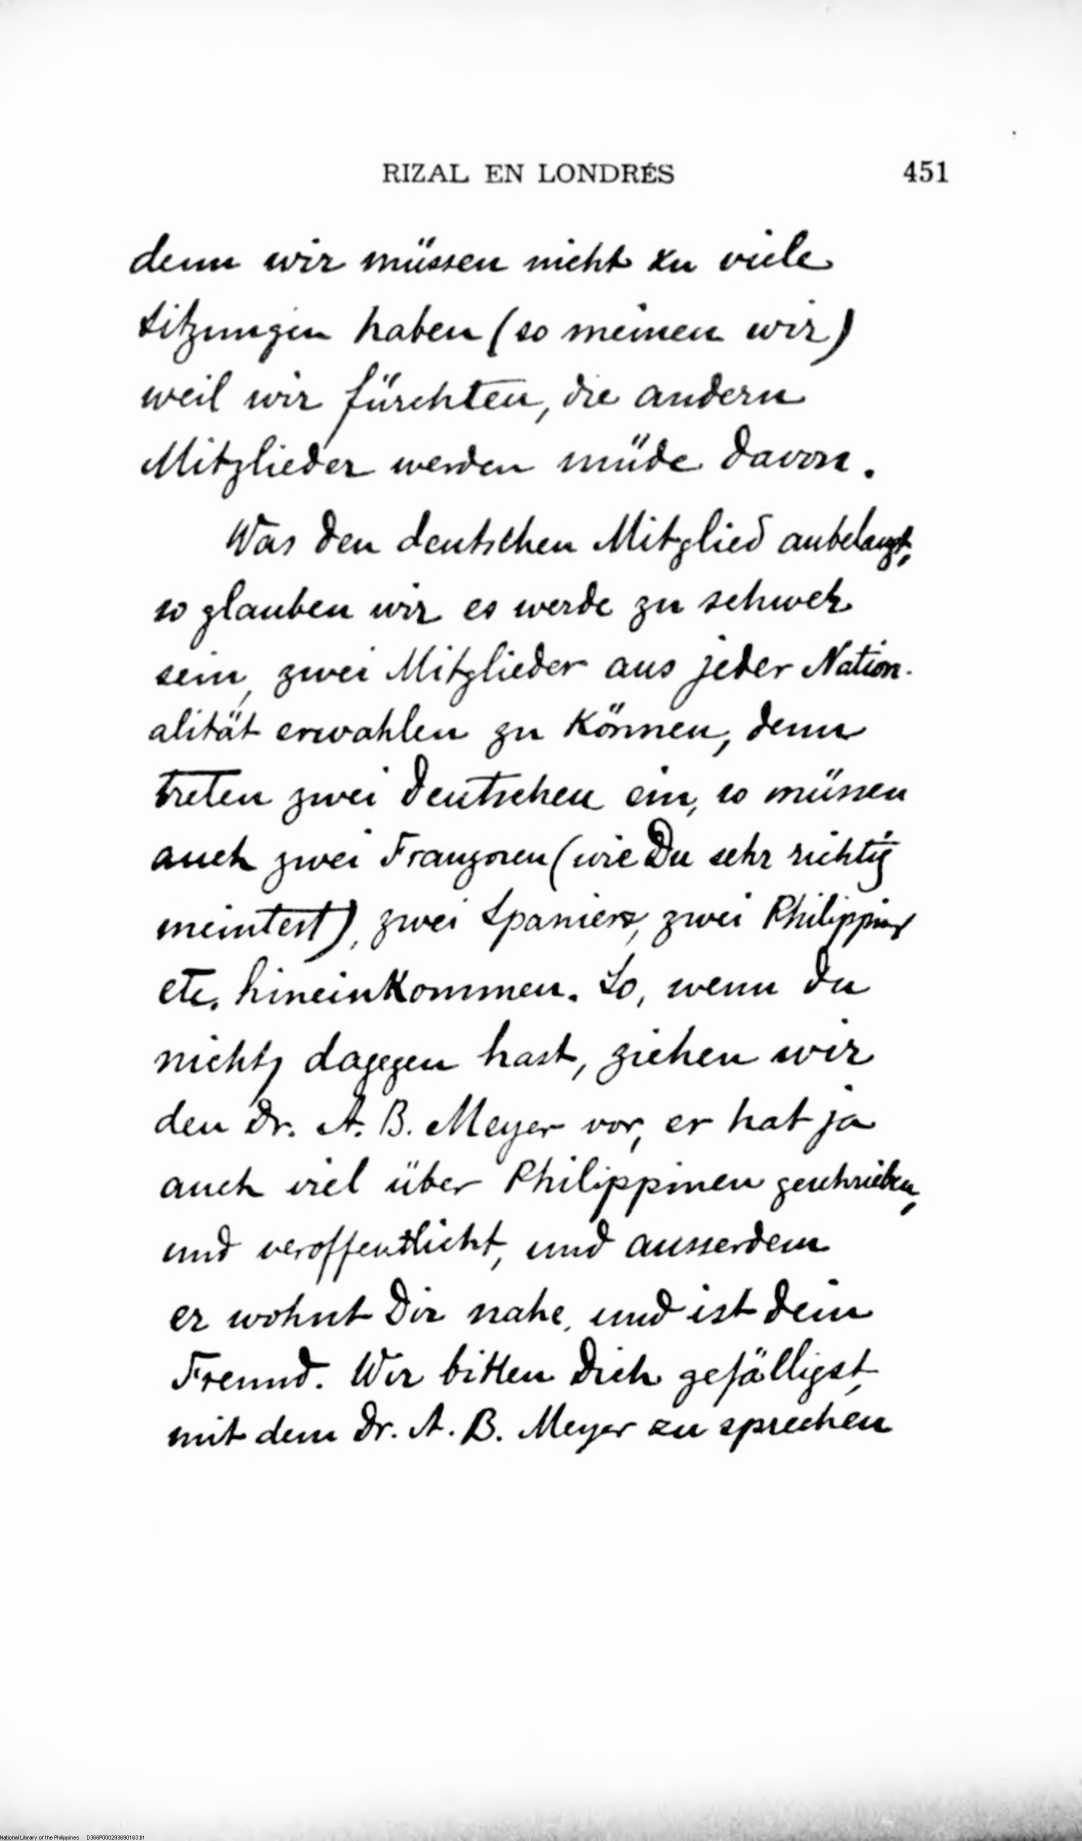 RIZAL EN LONDRÉS 451
denn wir müssen nicht zu viele
Sitzungen haben (so meinen wir)
weil wir fürchten, die andern
Mitglieder werden müde davon.
Was den deutschen Mitglied anbelangt,
so glauben wir es werde zu schwer
sein, zwei Mitglieder aus jeder Nation-
alität erwahlen zu können, denn
treten zwei Deutschen ein, so müssen
auch zwei Franzosen (wie Du sehr richtig
meintest), zwei Spaniers, zwei Philippiner
etc. hineinkommen. So, wenn du
nichts dagegen hast, ziehen wir
den Dr. A. B. Meyer vor, er hat ja
auch viel über Philippinen geschrieben,
und veroffentlicht, und ausserdem
er wohnt Dir nahe, und ist dein
Freund. Wir bitten Dich gefälligst
mit dem Dr. A. B. Meyer zu sprechen
National Library of the Philippines